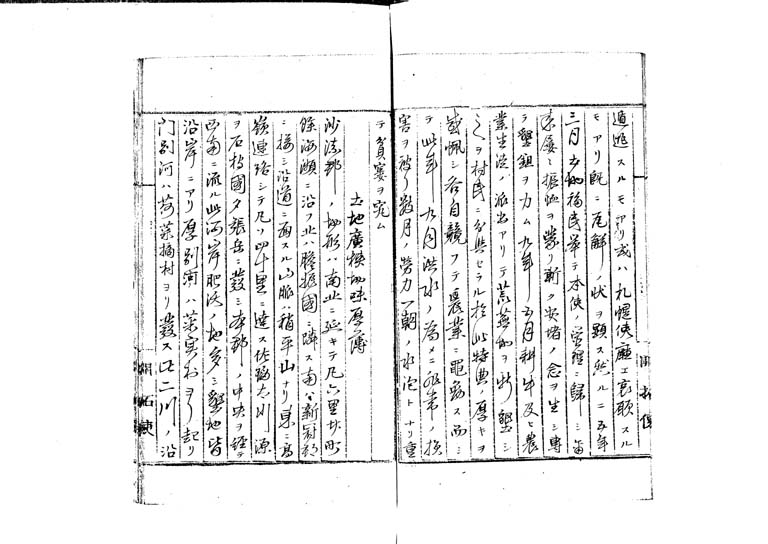 遁逃スルモノアリ或ハ札幌使廳エ哀願スル
モノアリ既ニ瓦解ノ状ヲ顕ス然ルニ五年
三月 移民挙テ本使ノ管轄ニ歸シ
屡々振恤ヲ蒙リ漸ク安堵ノ念ヲ生シ専
ラ墾鉏ヲ力ム九年五月耕牛及ヒ農
業生徒ノ派出アリテ荒蕪地ヲ新墾シ
之ヲ村民ニ分與セラル於此特典ノ厚キヲ
感佩シ各自競フテ農業ニ黽勉ス而シ
テ此年九月洪水ノ為メニ非常ノ損
害ヲ被リ数月ノ勞力一朝ノ水泡トナリ重
テ貧窶ヲ究ム
土地廣狭地味厚薄
沙流郡ノ地形ハ南北ニ延キテ凡六里廿町
餘海瀬ニ沿フ北ハ膽振國ニ隣ス南ハ新冠郡
ニ接シ沿道ニ面スル山脈ハ稍平山ナリ東ニ高
嶺連絡シテ凡ソ四十里ニ達ス佐瑠太川源
ヲ石狩國夕張岳ニ發シ本郡ノ中央ヲ経テ
西南ニ流ル此河岸肥沃ノ地多シ墾地皆
沿岸ニアリ厚別河ハ 村ヨリ起リ
門別河ハ荷菜摘村ヨリ發ス此二川ノ沿
開拓使
開拓使